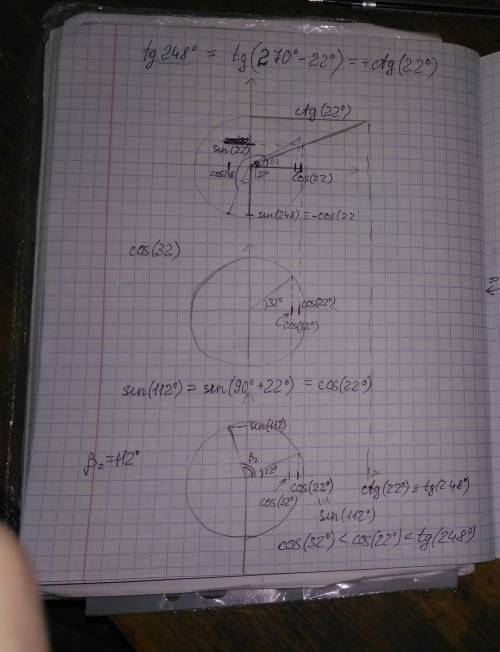 tg 248° = tg(270° - 22°) = + ctg(22°)
ctg(22°)
sin(22)
cos248
22
32°
cos(22)
sin(248) = -cos(22
cos(32)
32°
cos(22°)
cos(32°)
sin(112°) = sin(90° + 22°) = cos(22°)
sin(112)
β₂ = 112°
β₂
22°
cos(22°)
cos(32°)
ctg(22°) = tg(248°)
sin(112°)
cos(32°) < cos(22°) < tg(248°)